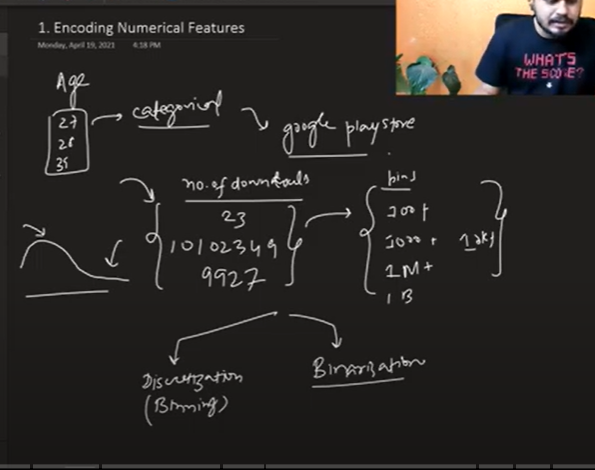 1. Encoding Numerical Features
Monday, April 19, 2021 4:18 PM
WHAT'S
THE SCORE?
Age
27
28
35
categorical
google playstore
no. of downloads
23
10102349
9927
bins
100+
1000+
1M+
1B
Discretization
(Binning)
Binarization